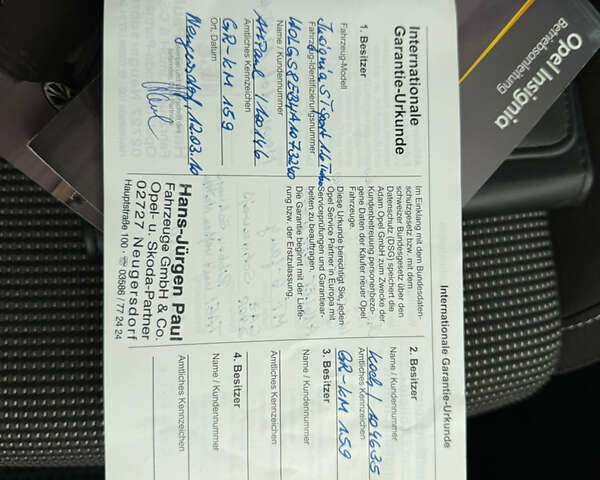 Opel Insignia
Betriebsanleitung
Internationale Garantie-Urkunde
Internationale
Garantie-Urkunde
1. Besitzer
Fahrzeug-Modell
Fahrzeug-Identifizierungsnummer
Name / Kundennummer
/ 120146
Amtliches Kennzeichen
GR-KM 159
Ort, Datum
Neugersdorf, 12.03.10
Im Einklang mit dem Bundesdaten-
schutzgesetz bzw. mit dem
schweizer Bundesgesetz über den
Datenschutz (DSG) speichert die
Adam Opel GmbH zum Zwecke der
Kundenbetreuung personenbezo-
gene Daten der Käufer neuer Opel
Fahrzeuge.
Diese Urkunde berechtigt Sie, jeden
Opel Service Partner in Europa mit
Serviceprüfungen und Garantiear-
beiten zu beauftragen.
Die Garantie beginnt mit der Liefe-
rung bzw. der Erstzulassung,
Hans-Jürgen Paul
Fahrzeuge GmbH & Co.
Opel- u. Skoda-Partner
02727 Neugersdorf
Hauptstraße 100 ☏ 03586 / 77 24 24
2. Besitzer
Name / Kundennummer
Koch / 104635
Amtliches Kennzeichen
GR-KM 159
3. Besitzer
Name / Kundennummer
Amtliches Kennzeichen
4. Besitzer
Name / Kundennummer
Amtliches Kennzeichen